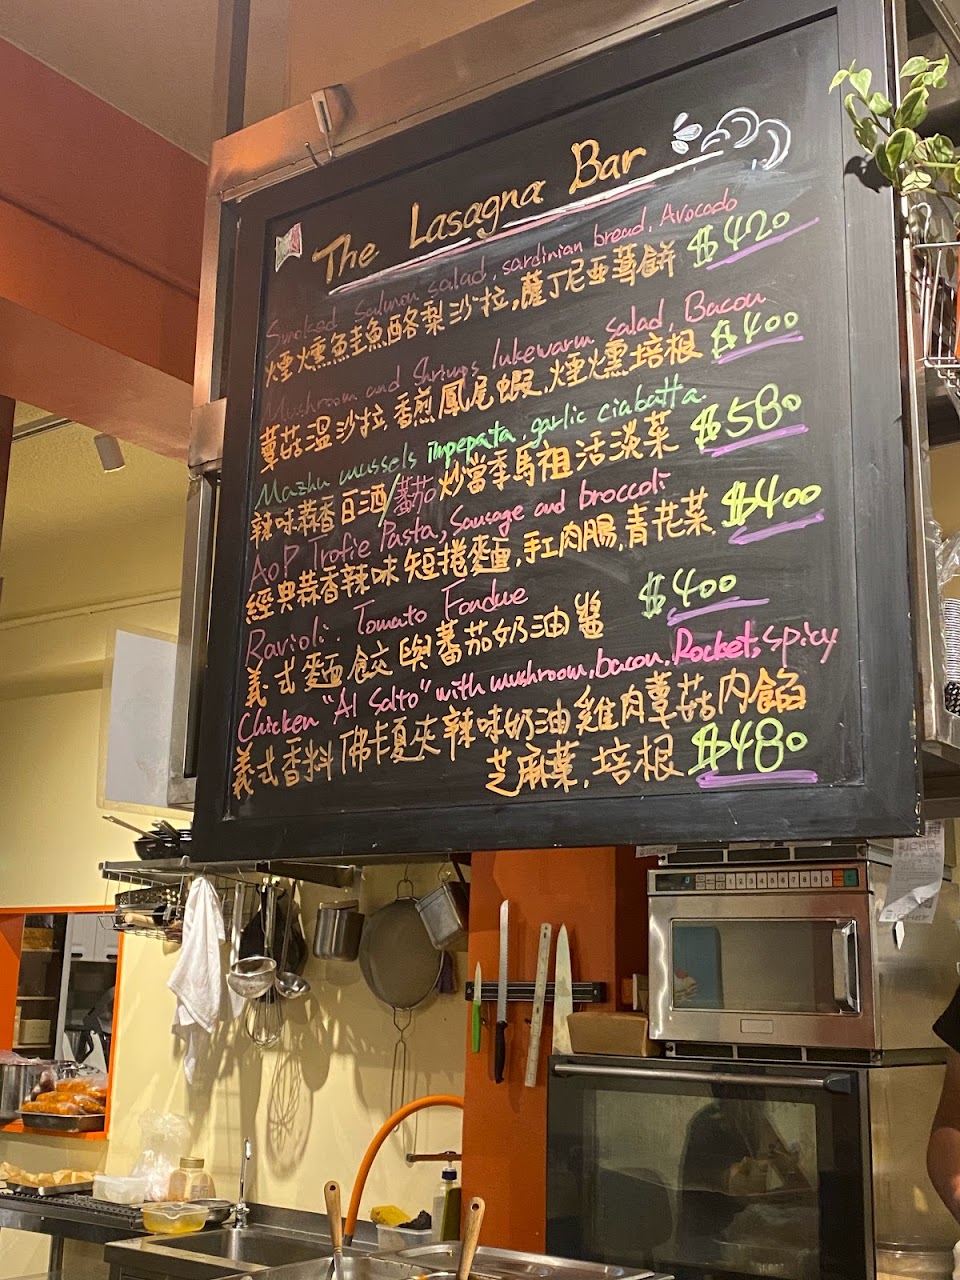 The Lasagna Bar
Smoked salmon salad, sardinian bread, Avocado
煙燻鮭魚酪梨沙拉,薩丁尼亞薄餅 $420
Mushroom and Shrimps lukewarm salad, Bacon
蕈菇溫沙拉 香煎鳳尾蝦 煙燻培根 $400
Mazhu mussels impepata, garlic ciabatta
辣味蒜香白酒/蕃茄 炒當季馬祖活淡菜 $580
AoP Trofie Pasta, Sausage and broccoli
經典蒜香辣味短捲麵,手工肉腸,青花菜 $400
Ravioli. Tomato Fondue
義式麵餃與蕃茄奶油醬 $400
Chicken "Al Salto" with mushroom, bacon, Rocket, spicy
義式香料佛卡夏夾辣味奶油雞肉蕈菇內餡
芝麻葉,培根 $480